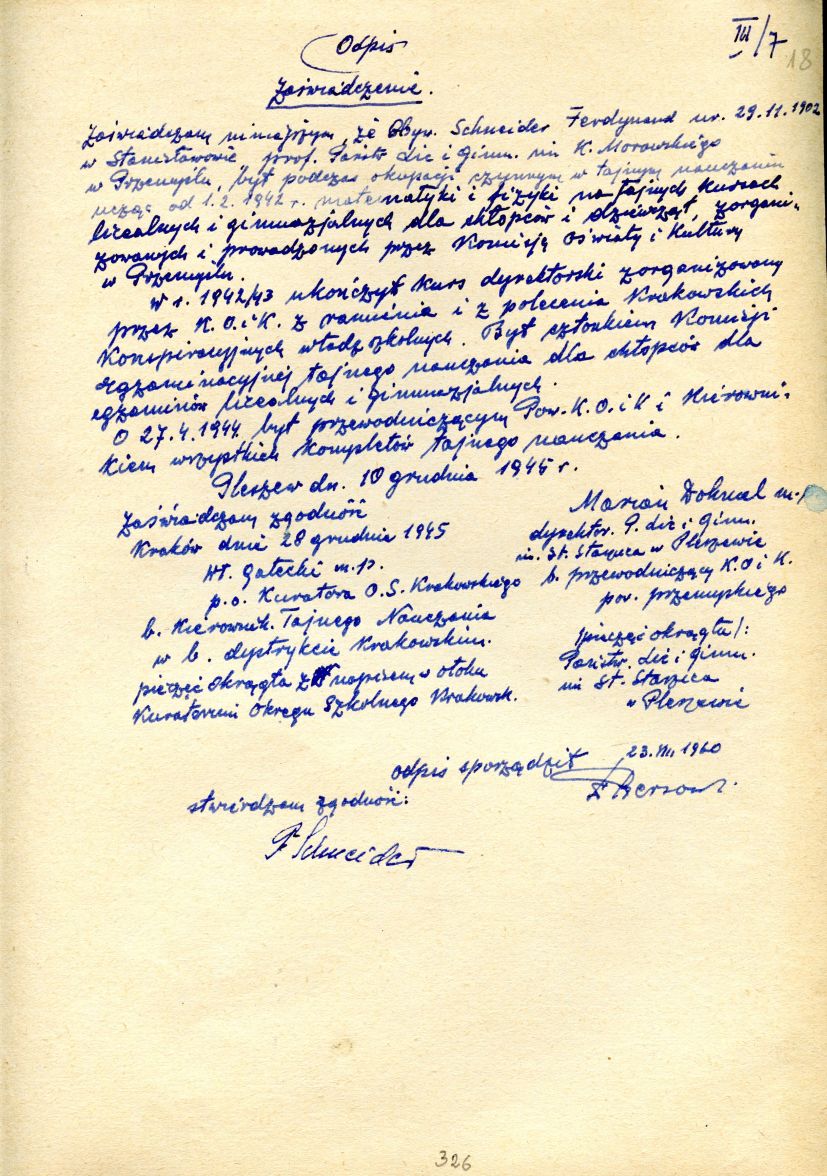 III/7
18
Odpis
Zaświadczenie.
Zaświadczam niniejszym, że Obyw. Schneider Ferdynand ur. 29.11.1902
w Stanisławowie prof. Państw. Lic. i Gimn. im K. Morawskiego
w Przemyślu, był podczas okupacji czynnym w tajnym nauczaniu
ucząc od 1.2.1942 r. matematyki i fizyki na tajnych kursach
licealnych i gimnazjalnych dla chłopców i dziewcząt, zorgani-
zowanych i prowadzonych przez Komisją Oświaty i Kultury
w Przemyślu.
W r. 1942/43 ukończył kurs dyrektorski zorganizowany
przez K.O.i K. z ramienia i z polecenia Krakowskich
Konspiracyjnych władz szkolnych. Był członkiem Komisji
egzaminacyjnej tajnego nauczania dla chłopców dla
egzaminów licealnych i gimnazjalnych.
O 27.4.1944 był przewodniczącym Pow. K.O. i K i Kierowni-
kiem wszystkich Kompletów tajnego nauczania.
Pleszew dn. 10 grudnia 1945 r.
Zaświadczam zgodność
Kraków dnie 28 grudnie 1945
Wł. Gałecki m.p.
p.o. Kuratora O.S. Krakowskiego
b. Kierownik Tajnego Nauczania
w b. dystrykcie Krakowskim.
pieczęć okrągła z napisem w otoku
Kuratorium Okręgu Szkolnego Krakowsk.
Marian Dohnal m.p.
dyrektor P. Lic i Gimn.
im. St. Staszica w Pleszewie
b. przewodniczący K.O i K.
pow. przemyskiego
/pieczęć okrągła/:
Państw. Lic i Gimn.
im St. Staszica
w Pleszewie
odpis sporządził 23.VII 1960
stwierdzam zgodność:
F Schneider
326